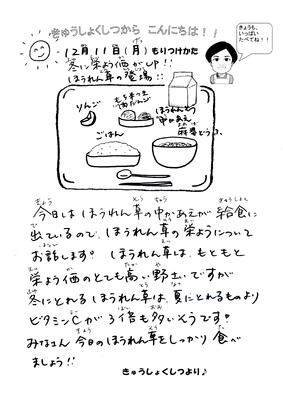 きゅうしょくしつから こんにちは！！
きょうも、
いっぱい
たべてね！！
12月11日(月)もりつけかた
冬に栄よう価がUP!!
ほうれん草の登場!!
りんご
ほうれんそう
中かあえ
ごはん
麻婆どうふ
今日はほうれん草の中かあえが給食に
出ているので、ほうれん草の栄ようについて
お話します。ほうれん草は、もともと
栄よう価のとても高い野さいですが
冬にとれるほうれん草は夏にとれるものより
ビタミンCが3倍も多いそうです。
みなさん今日のほうれん草をしっかり食べ
ましょう!!
きゅうしょくしつより♪